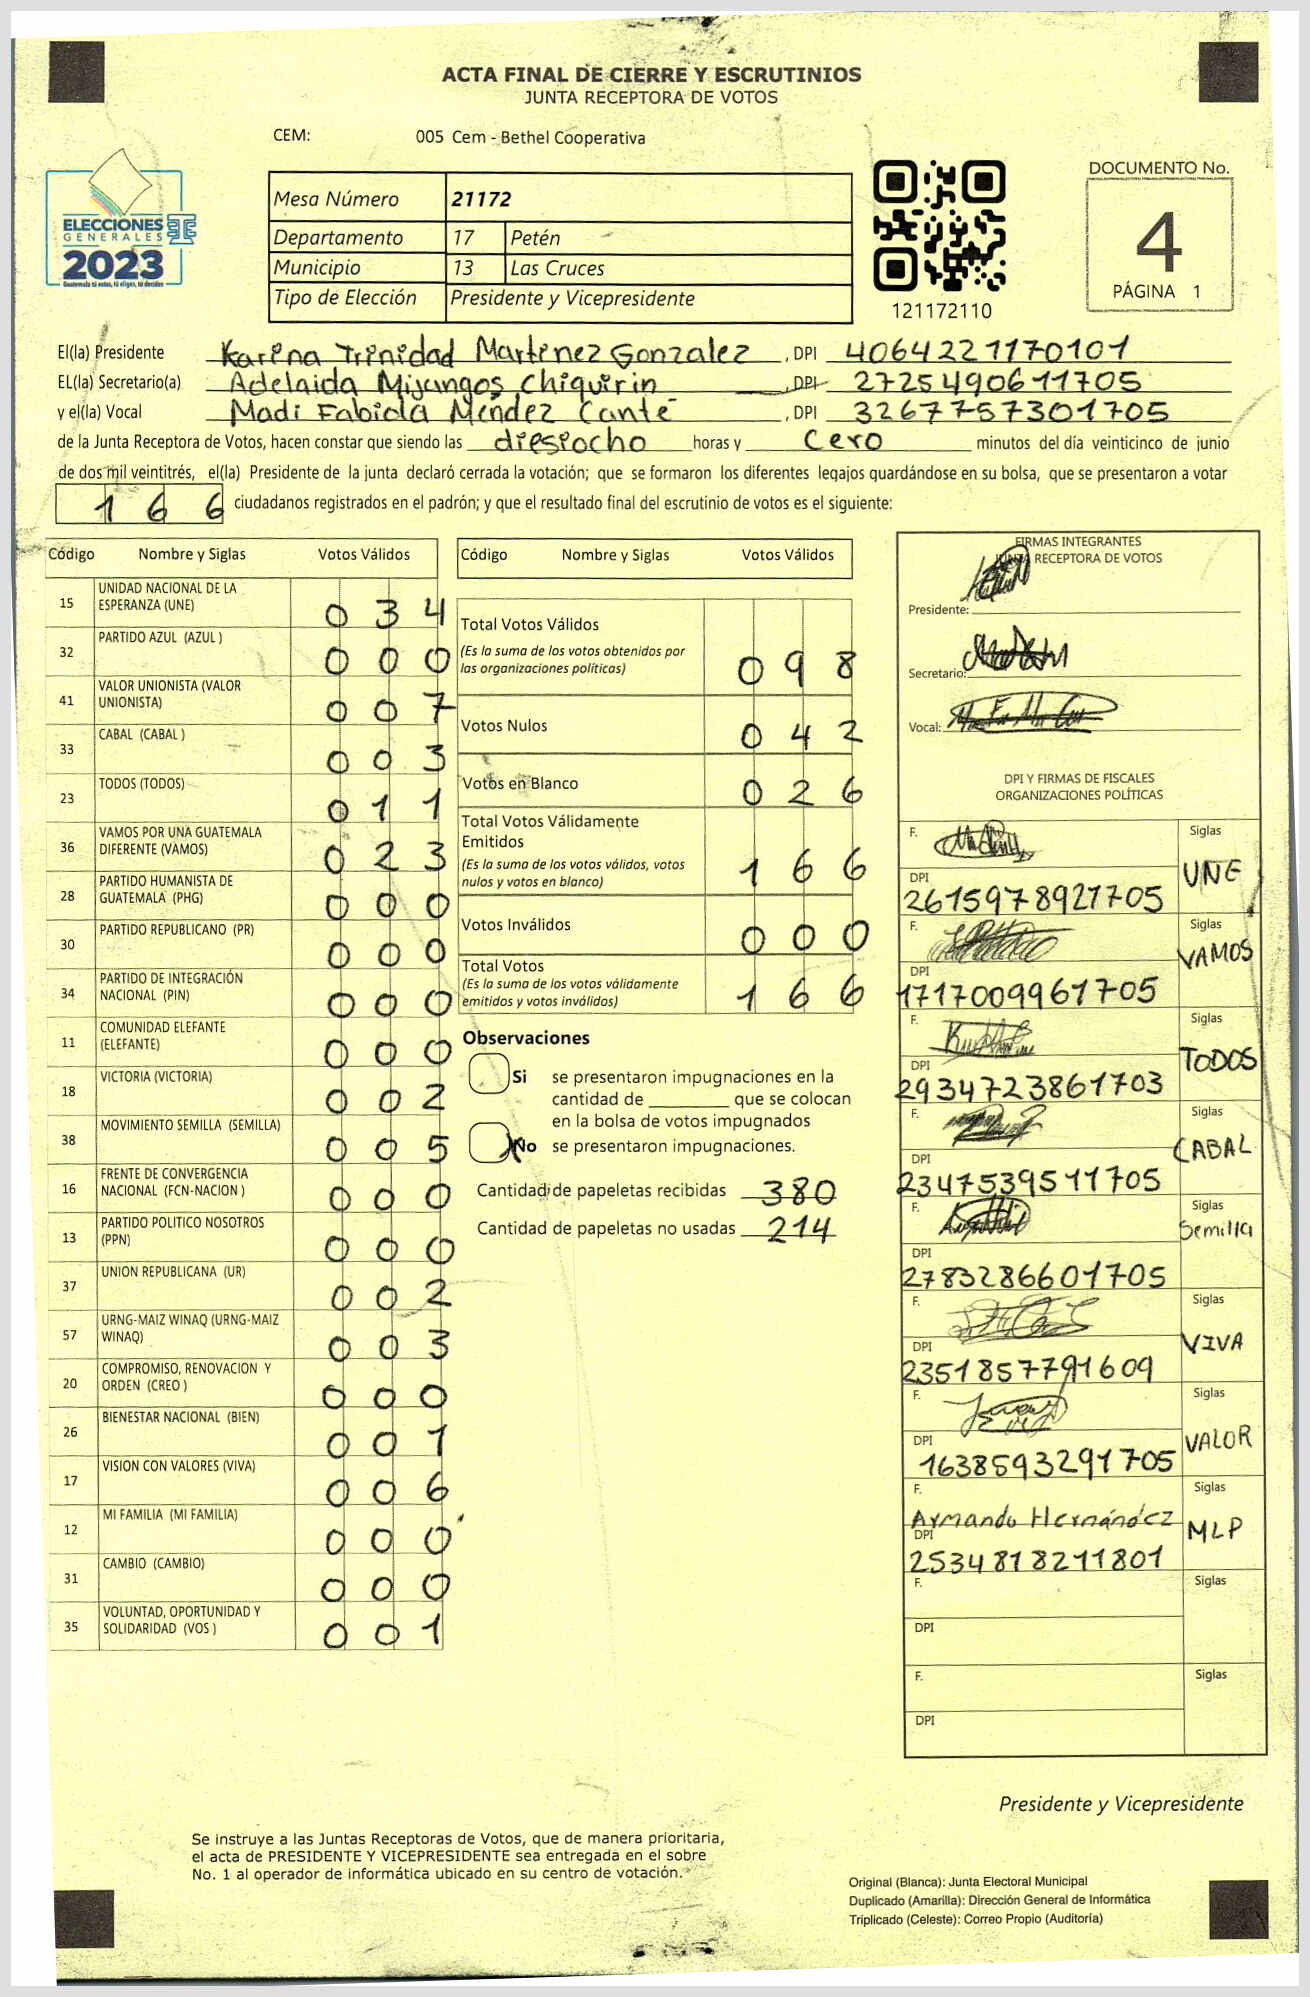 ACTA FINAL DE CIERRE Y ESCRUTINIOS
JUNTA RECEPTORA DE VOTOS
CEM: 005 Cem - Bethel Cooperativa
ELECCIONES
GENERALES
2023
Guatemala tú votas, tú eliges, tú decides
Mesa Número 21172
Departamento 17 Petén
Municipio 13 Las Cruces
Tipo de Elección Presidente y Vicepresidente
121172110
DOCUMENTO No.
4
PÁGINA 1
El(la) Presidente Karina Trinidad Martinez Gonzalez , DPI 4064221170101
EL(la) Secretario(a) Adelaida Mijangos Chiquirin , DPI 2725490611705
y el(la) Vocal Madi Fabiola Méndez Canté , DPI 3267757301705
de la Junta Receptora de Votos, hacen constar que siendo las diesiocho horas y Cero minutos del día veinticinco de junio
de dos mil veintitrés, el(la) Presidente de la junta declaró cerrada la votación; que se formaron los diferentes legajos guardándose en su bolsa, que se presentaron a votar
166 ciudadanos registrados en el padrón; y que el resultado final del escrutinio de votos es el siguiente:
Código Nombre y Siglas Votos Válidos
15 UNIDAD NACIONAL DE LA ESPERANZA (UNE) 034
32 PARTIDO AZUL (AZUL ) 000
41 VALOR UNIONISTA (VALOR UNIONISTA) 007
33 CABAL (CABAL ) 003
23 TODOS (TODOS) 011
36 VAMOS POR UNA GUATEMALA DIFERENTE (VAMOS) 023
28 PARTIDO HUMANISTA DE GUATEMALA (PHG) 000
30 PARTIDO REPUBLICANO (PR) 000
34 PARTIDO DE INTEGRACIÓN NACIONAL (PIN) 000
11 COMUNIDAD ELEFANTE (ELEFANTE) 000
18 VICTORIA (VICTORIA) 002
38 MOVIMIENTO SEMILLA (SEMILLA) 005
16 FRENTE DE CONVERGENCIA NACIONAL (FCN-NACION ) 000
13 PARTIDO POLITICO NOSOTROS (PPN) 000
37 UNION REPUBLICANA (UR) 002
57 URNG-MAIZ WINAQ (URNG-MAIZ WINAQ) 003
20 COMPROMISO, RENOVACION Y ORDEN (CREO ) 000
26 BIENESTAR NACIONAL (BIEN) 001
17 VISION CON VALORES (VIVA) 006
12 MI FAMILIA (MI FAMILIA) 000
31 CAMBIO (CAMBIO) 000
35 VOLUNTAD, OPORTUNIDAD Y SOLIDARIDAD (VOS ) 001
Código Nombre y Siglas Votos Válidos
Total Votos Válidos 098
(Es la suma de los votos obtenidos por
las organizaciones políticas)
Votos Nulos 042
Votos en Blanco 026
Total Votos Válidamente
Emitidos 166
(Es la suma de los votos válidos, votos
nulos y votos en blanco)
Votos Inválidos 000
Total Votos 166
(Es la suma de los votos válidamente
emitidos y votos inválidos)
Observaciones
Si se presentaron impugnaciones en la
cantidad de ________ que se colocan
en la bolsa de votos impugnados
No se presentaron impugnaciones.
Cantidad de papeletas recibidas 380
Cantidad de papeletas no usadas 214
FIRMAS INTEGRANTES
JUNTA RECEPTORA DE VOTOS
Presidente:
Secretario:
Vocal:
DPI Y FIRMAS DE FISCALES
ORGANIZACIONES POLÍTICAS
F. Siglas
UNE
DPI
2615978921705
F. Siglas
VAMOS
DPI
1717009961705
F. Siglas
TODOS
DPI
2934723861703
F. Siglas
CABAL
DPI
2347539511705
F. Siglas
Semilla
DPI
2783286601705
F. Siglas
VIVA
DPI
2351857791609
F. Siglas
VALOR
DPI
1638593291705
F. Siglas
Armando Hernández MLP
DPI
2534818211801
F. Siglas
DPI
F. Siglas
DPI
Presidente y Vicepresidente
Se instruye a las Juntas Receptoras de Votos, que de manera prioritaria,
el acta de PRESIDENTE Y VICEPRESIDENTE sea entregada en el sobre
No. 1 al operador de informática ubicado en su centro de votación.
Original (Blanca): Junta Electoral Municipal
Duplicado (Amarilla): Dirección General de Informática
Triplicado (Celeste): Correo Propio (Auditoría)